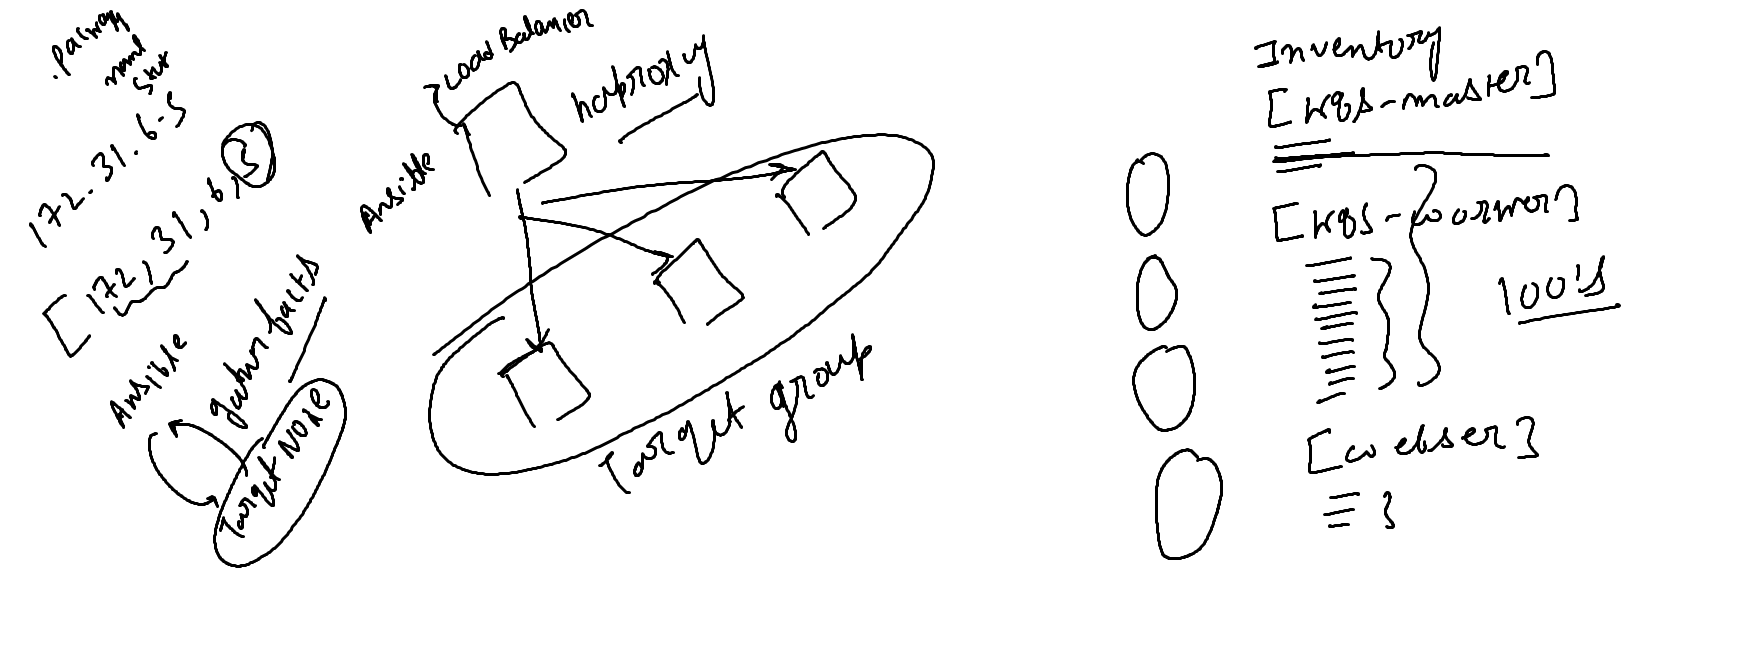 172.31.6.5
[172,31,6,3
Ansible
gather facts
Target Node
Load Balancer
haproxy
Ansible
Target group
Inventory
[k8s-master]
[k8s-worker]
100's
[webser]